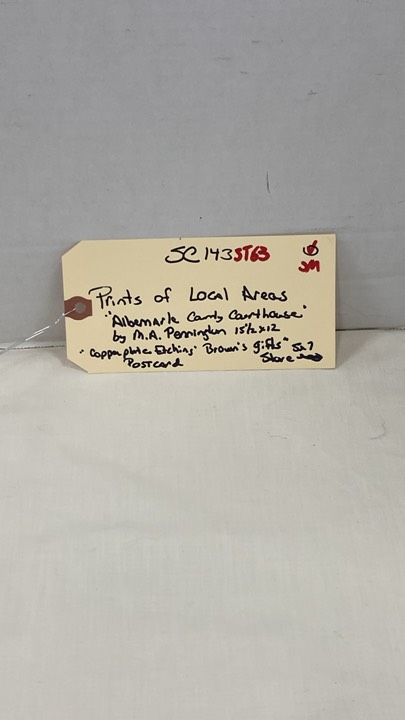 SC 143 ST63
JM
Prints of Local Areas
"Albemarle County Courthouse"
by M.A. Pennington 15½x12
"Copperplate Etching" Brown's gifts" 5x7
Postcard Store